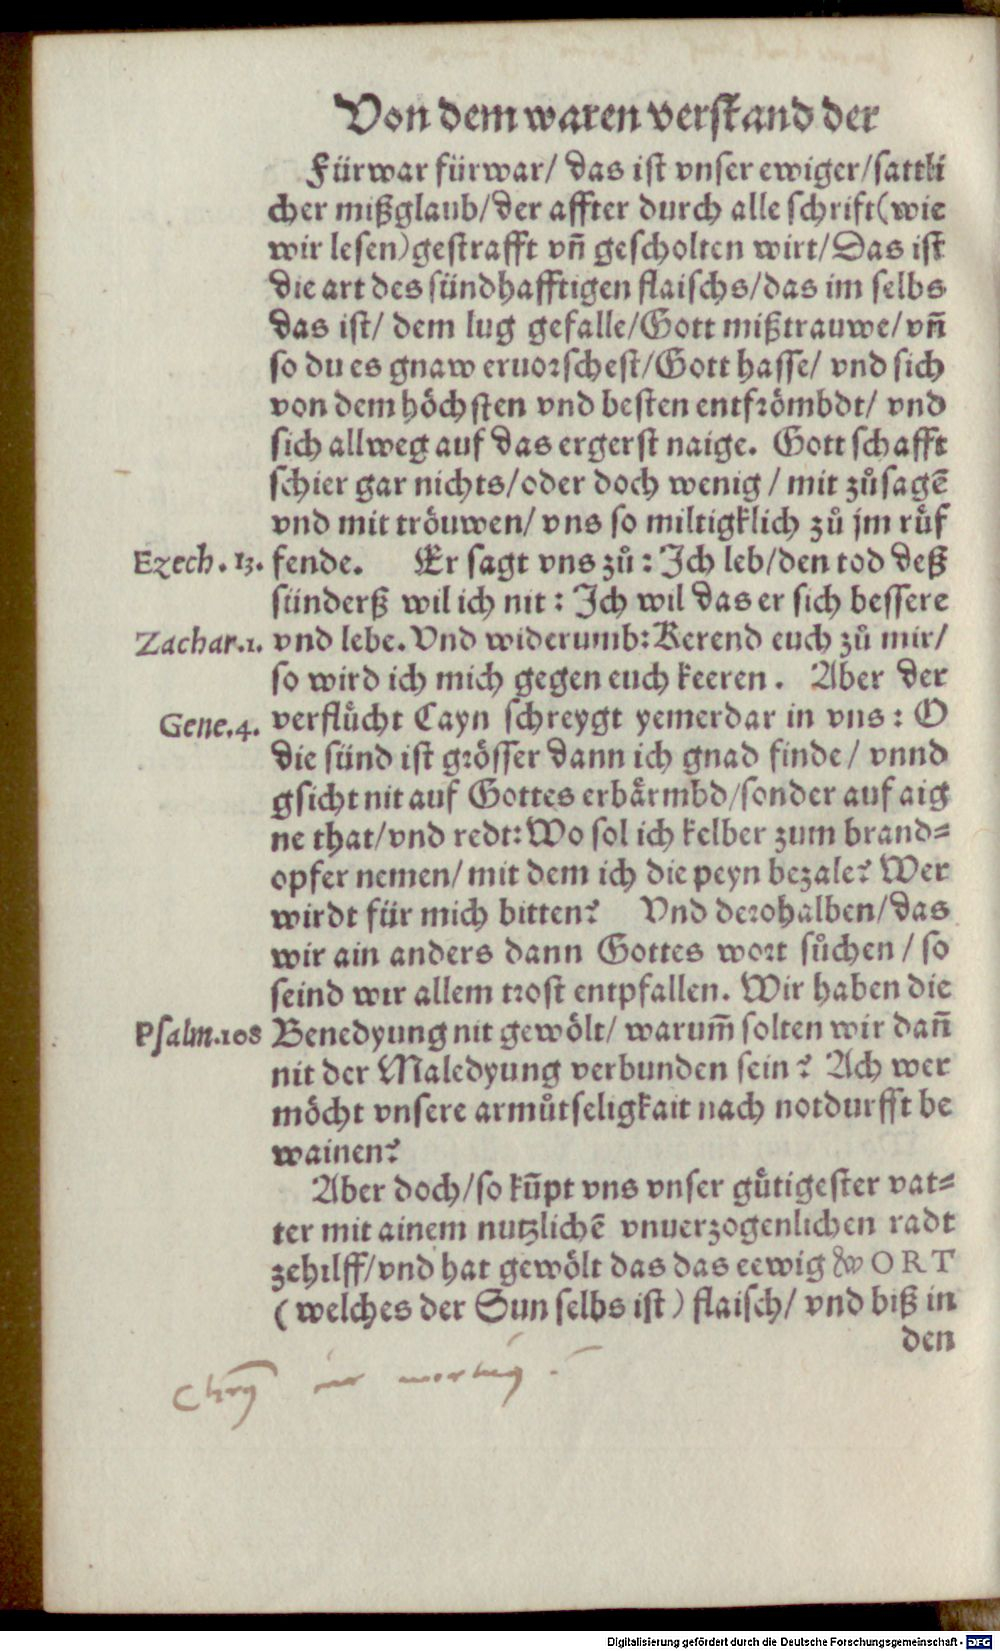 Von dem waren verstand der
Fürwar fürwar/ das ist vnser ewiger/sattli
cher mißglaub/der affter durch alle schrift(wie
wir lesen)gestrafft vñ gescholten wirt/Das ist
die art des sündhafftigen flaischs/das im selbs
das ist/ dem lug gefalle/Gott mißtrauwe/vñ
so du es gnaw eruorschest/Gott hasse/ vnd sich
von dem höchsten vnd besten entfrömbdt/ vnd
sich allweg auf das ergerst naige. Gott schafft
schier gar nichts/oder doch wenig/ mit zůsagẽ
vnd mit tröuwen/ vns so miltigklich zů jm růf
Ezech. 13. fende. Er sagt vns zů: Ich leb/den tod deß
sünderß wil ich nit: Ich wil das er sich bessere
Zachar.1. vnd lebe. Vnd widerumb: Kerend euch zů mir/
so wird ich mich gegen euch keeren. Aber der
Gene.4. verflůcht Cayn schreygt yemerdar in vns: O
die sünd ist grösser dann ich gnad finde/ vnnd
gsicht nit auf Gottes erbärmbd/sonder auf aig
ne that/vnd redt: Wo sol ich kelber zum brand=
opfer nemen/ mit dem ich die peyn bezale? Wer
wirdt für mich bitten? Vnd derohalben/das
wir ain anders dann Gottes wort sůchen/ so
seind wir allem trost entpfallen. Wir haben die
Psalm.108 Benedyung nit gewölt/ warum̃ solten wir dañ
nit der Maledyung verbunden sein? Ach wer
möcht vnsere armůtseligkait nach notdurfft be
wainen?
Aber doch/so kũpt vns vnser gůtigester vat=
ter mit ainem nutzlichẽ vnuerzogenlichen radt
zehilff/vnd hat gewölt das das eewig WORT
(welches der Sun selbs ist) flaisch/ vnd biß in
den